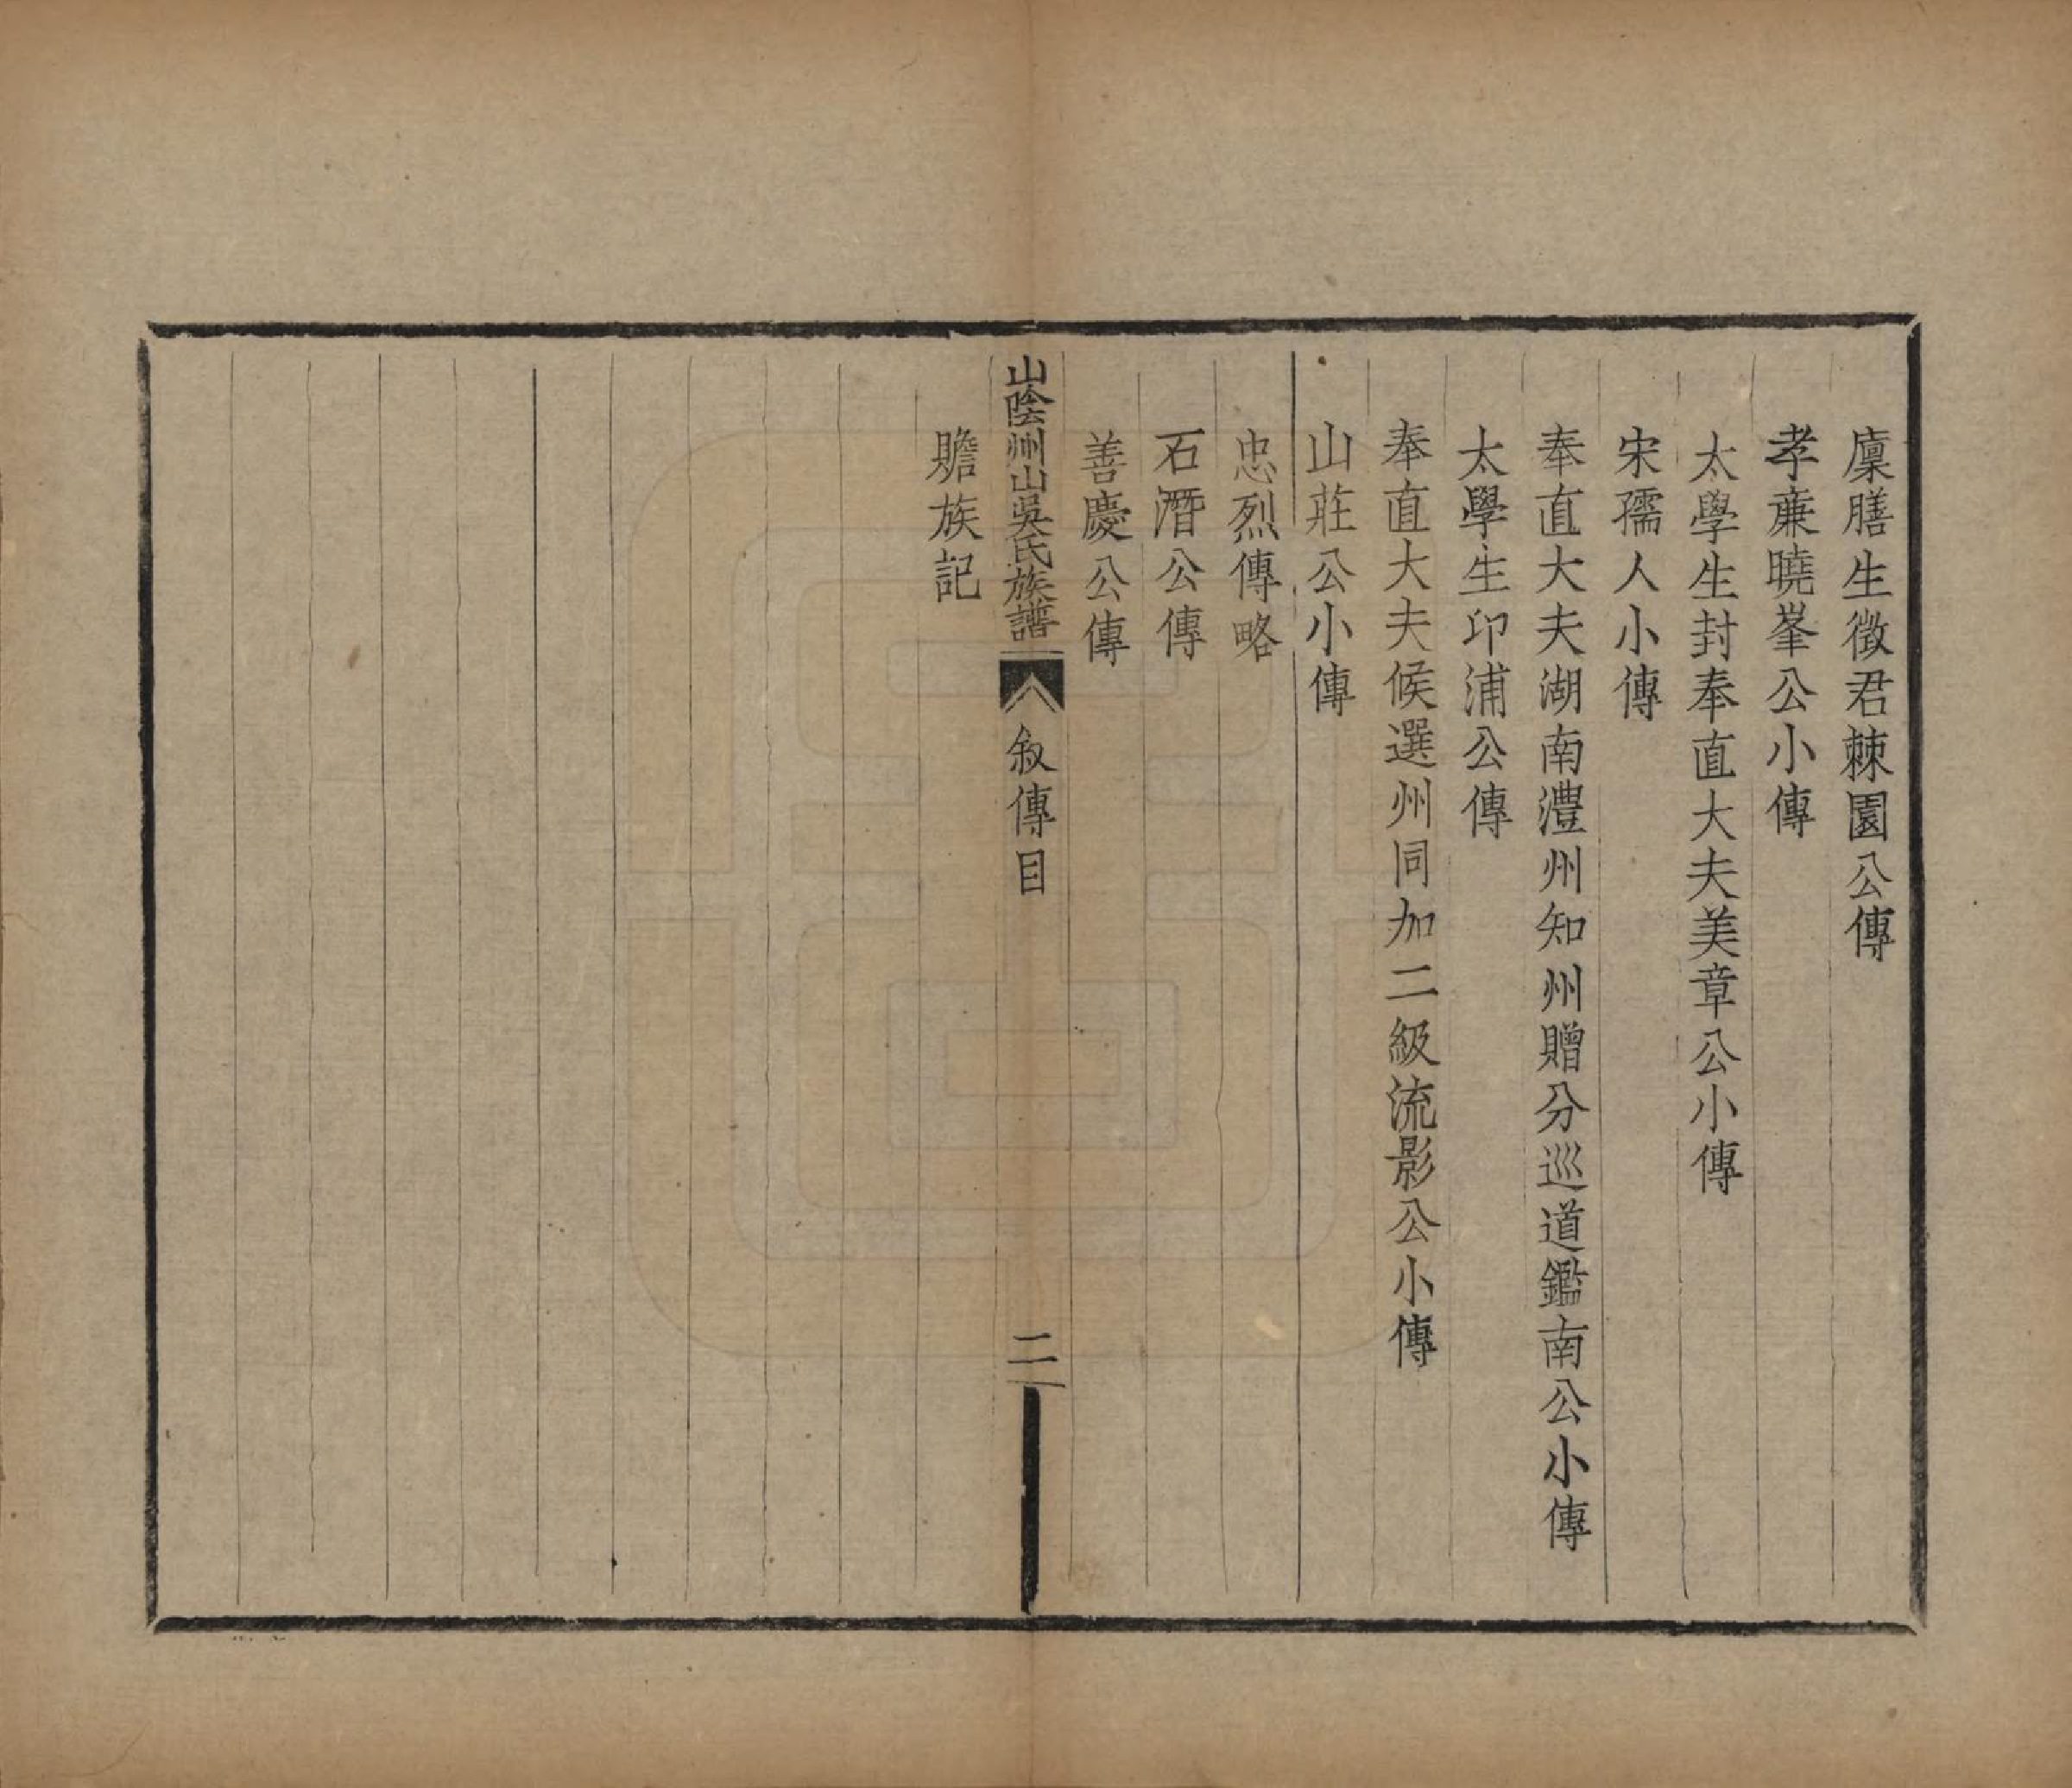 廩膳生徵君棘園公傳
孝亷曉峯公小傳
太學生封奉直大夫美章公小傳
宋孺人小傳
奉直大夫湖南澧州知州贈分巡道鑑南公小傳
太學生卬浦公傳
奉直大夫候選州同加二級流影公小傳
山莊公小傳
忠烈傳略
石潛公傳
善慶公傳
山陰州山吳氏族譜
叙傳目
二
贍族記